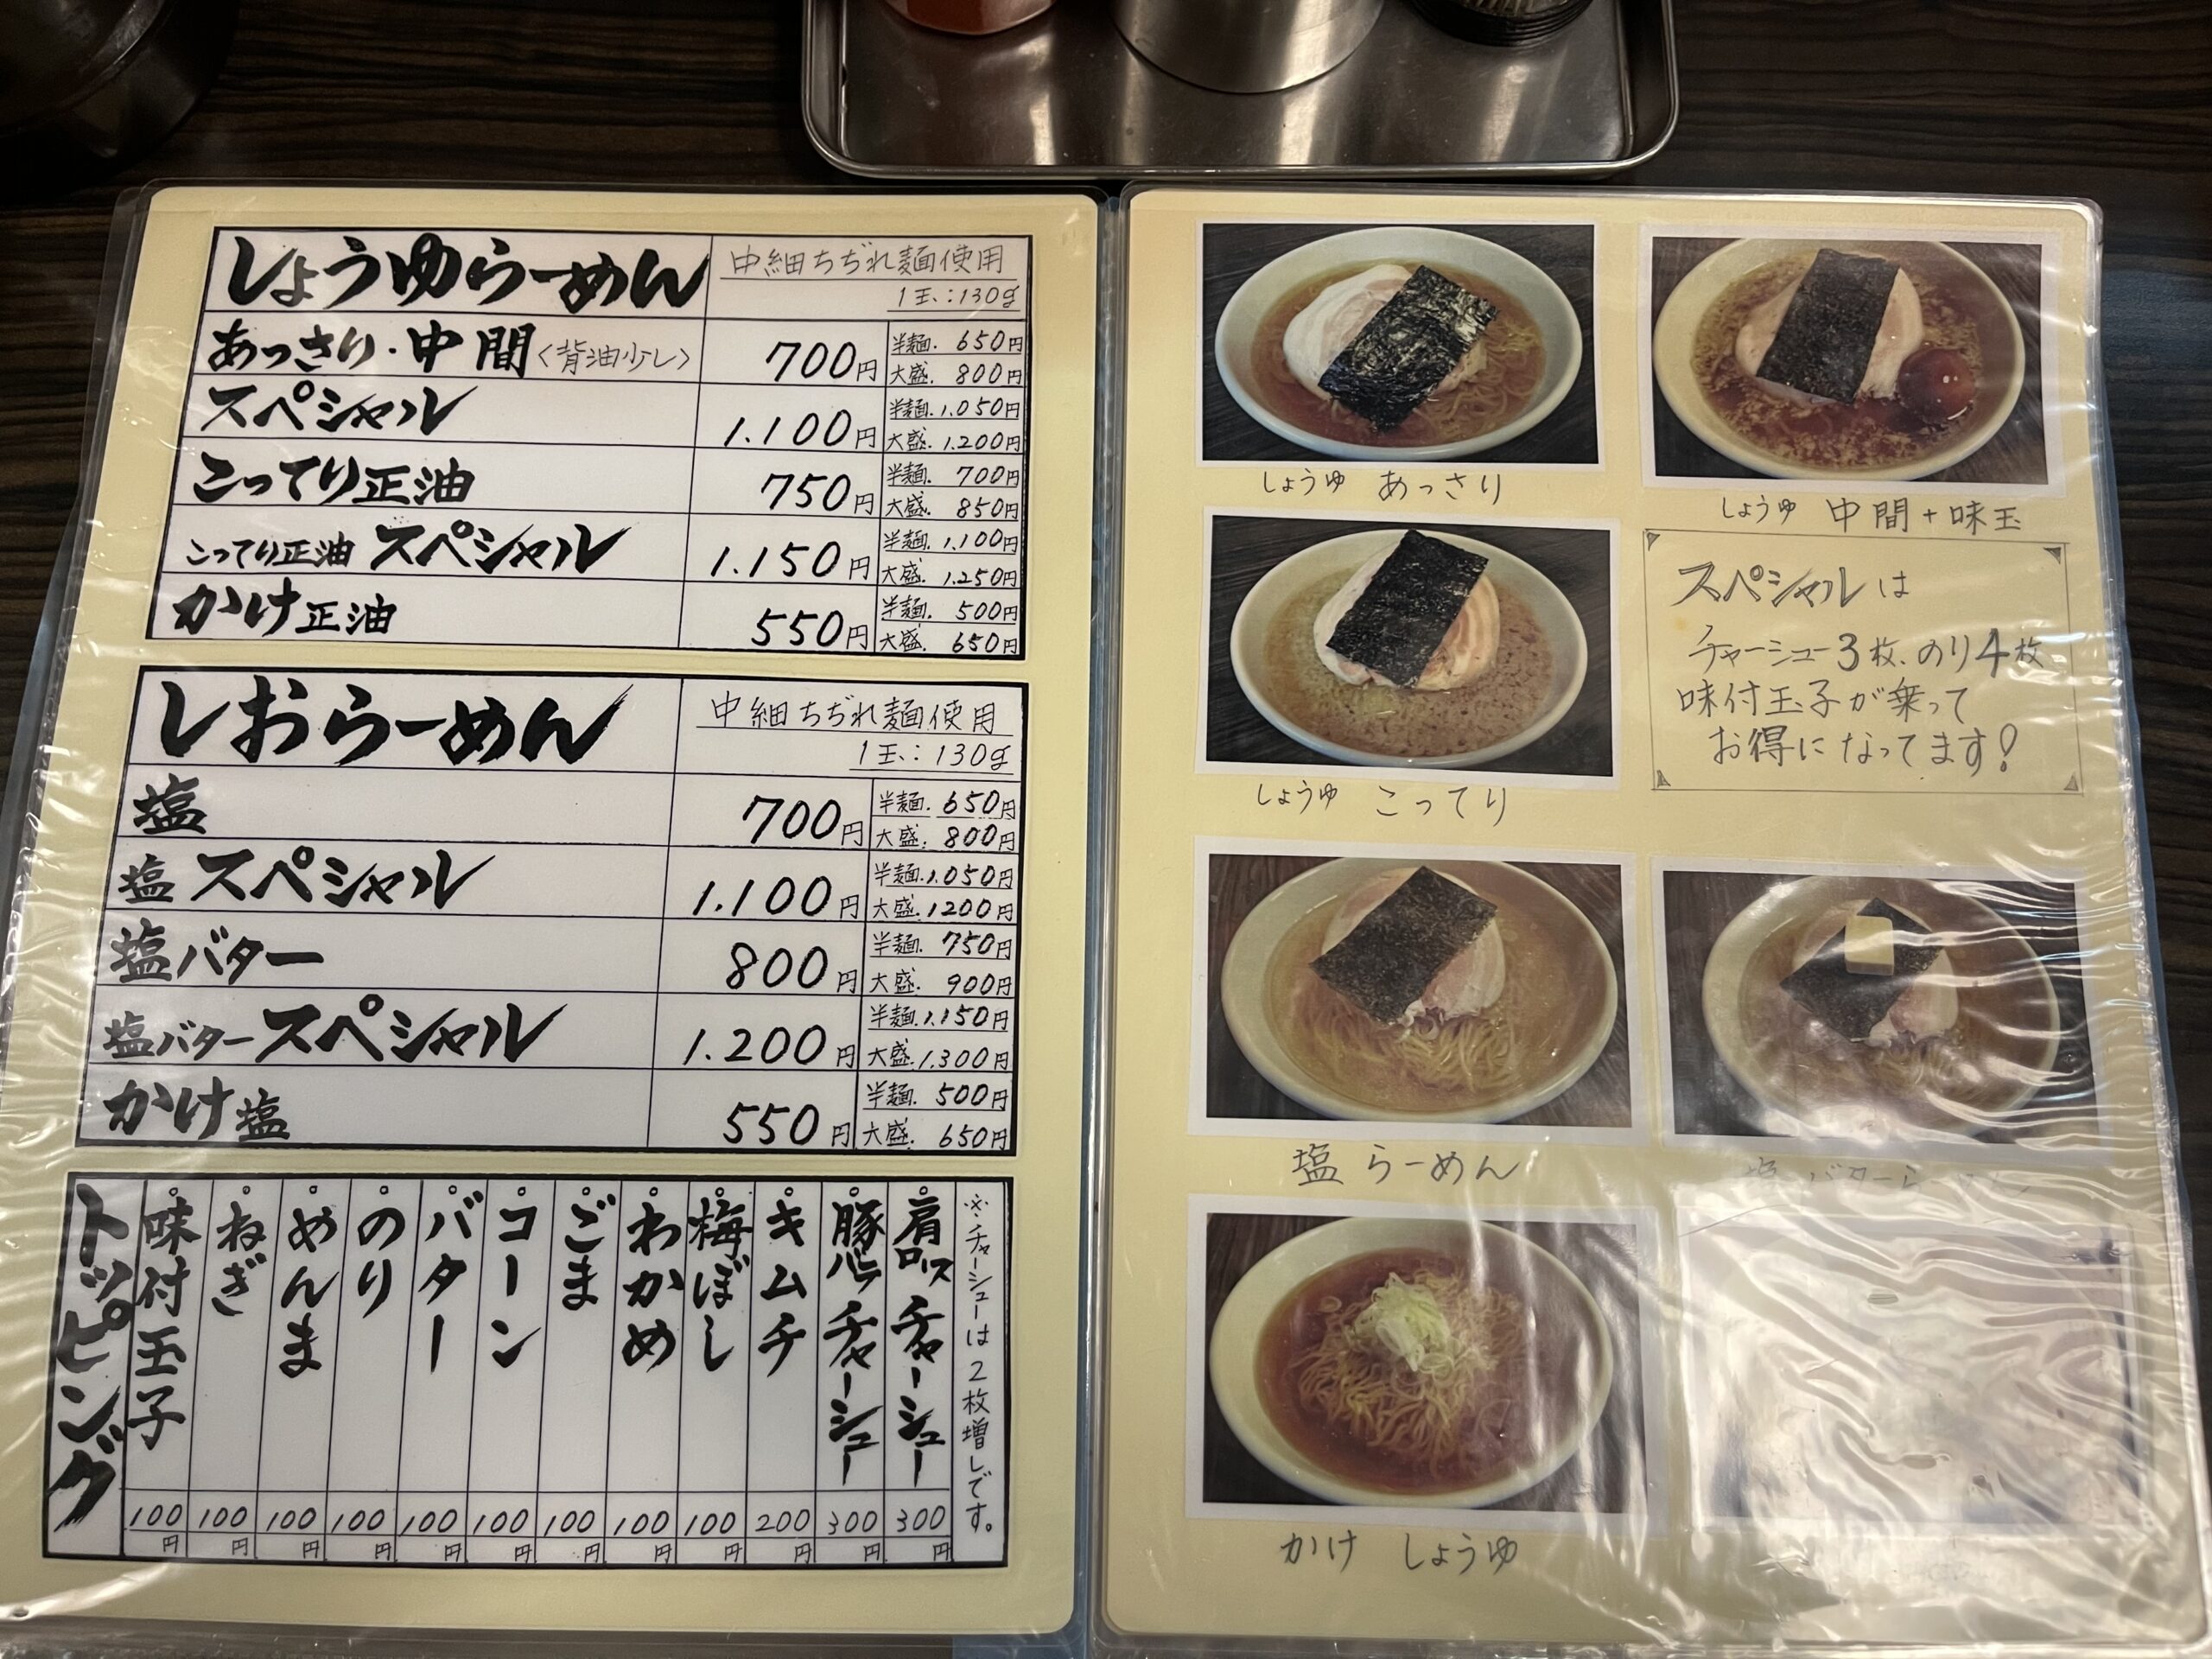 しょうゆらーめん 中細ちぢれ麺使用
1玉:130g
あっさり・中間〈背油少し〉 700円 半麺.650円
大盛.800円
スペシャル 1.100円 半麺.1.050円
大盛.1.200円
こってり正油 750円 半麺.700円
大盛.850円
こってり正油スペシャル 1.150円 半麺.1.100円
大盛.1.250円
かけ正油 550円 半麺.500円
大盛.650円
しおらーめん 中細ちぢれ麺使用
1玉:130g
塩 700円 半麺.650円
大盛.800円
塩スペシャル 1.100円 半麺.1.050円
大盛.1200円
塩バター 800円 半麺.750円
大盛.900円
塩バタースペシャル 1.200円 半麺.1.150円
大盛.1.300円
かけ塩 550円 半麺.500円
大盛.650円
トッピング
味付玉子 100円
ねぎ 100円
めんま 100円
のり 100円
バター 100円
コーン 100円
ごま 100円
わかめ 100円
梅ぼし 100円
キムチ 200円
豚バラチャーシュー 300円
肩ロースチャーシュー 300円
※チャーシューは2枚増しです。
しょうゆ あっさり
しょうゆ 中間+味玉
しょうゆ こってり
スペシャルは
チャーシュー3枚、のり4枚
味付玉子が乗って
お得になってます!
塩らーめん
塩バターらーめん
かけ しょうゆ